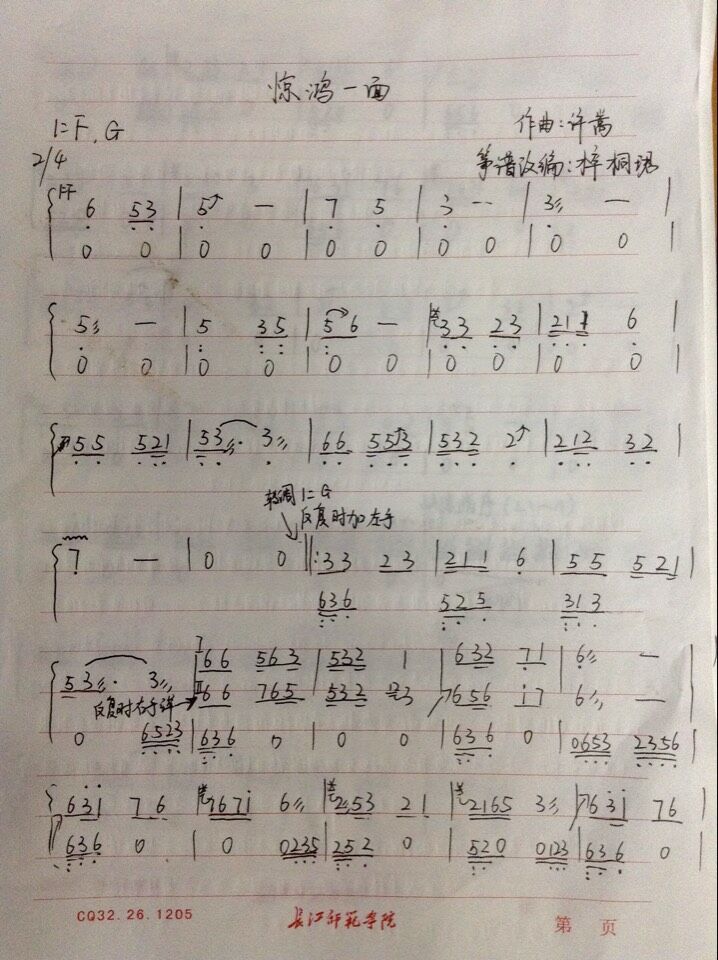 惊鸿一面
1=F, G
作曲:许嵩
2/4
筝谱改编:梓桐珺
6 53 | 5 — | 7 5 | 3 -- | 3 — |
0 0 | 0 0 | 0 0 | 0 0 | 0 0 |
5 — | 5 35 | 5 6 — | 33 23 | 211 6 |
0 0 | 0 0 | 0 0 | 0 0 | 0 0 |
55 521 | 53 · 3 | 66 553 | 532 2 | 212 32 |
转调 1=G
反复时加左手
7 — | 0 0 ‖: 33 23 | 211 6 | 55 521 |
636 525 313
53 · 3 | I 66 563 | 532 1 | 632 71 | 6 — |
反复时右手弹 II 66 765 | 532 3 | 7656 i7 6 — |
0 6523 | 636 0 | 0 0 | 636 0 | 0653 2356 |
63i 76 | 767i 6 | 2 53 21 | 2165 3 | 763i 76 |
636 0 | 0 0235 | 252 0 | 520 0123 | 636 0 |
CQ32.26.1205 长江师范学院 第 页